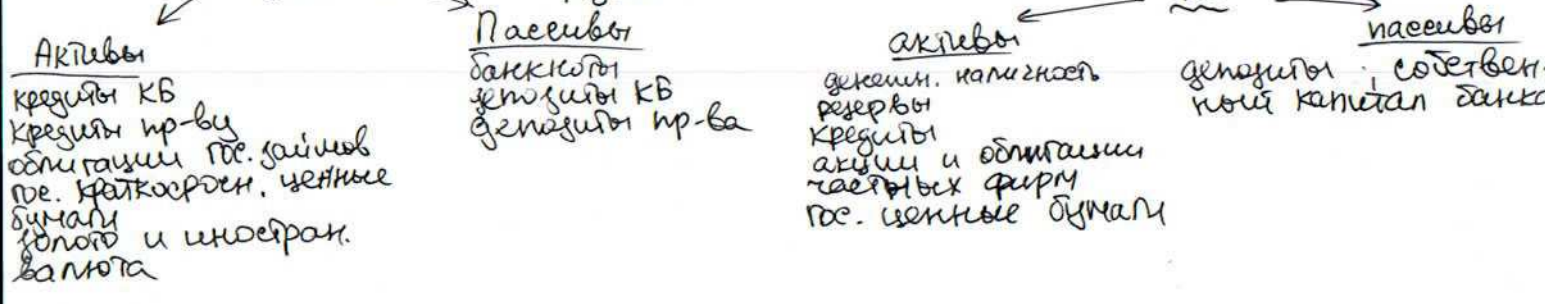 Активы
кредиты КБ
кредиты пр-ву
облигации гос. займов
гос. краткосрочн. ценные
бумаги
золото и иностран.
валюта
Пассивы
банкноты
депозиты КБ
депозиты пр-ва
активы
денежн. наличность
резервы
кредиты
акции и облигации
частных фирм
гос. ценные бумаги
пассивы
депозиты; собствен-
ный капитал банка